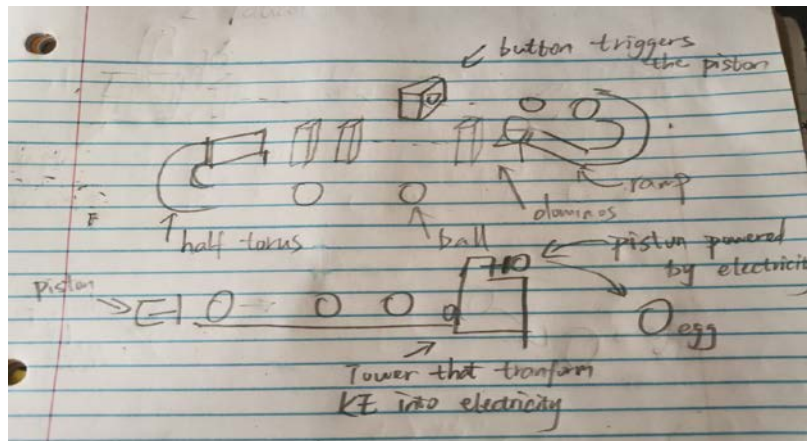 button triggers
the piston
ramp
dominos
half torus
ball
piston powered
by electricity
piston
egg
Tower that tranform
KE into electricity